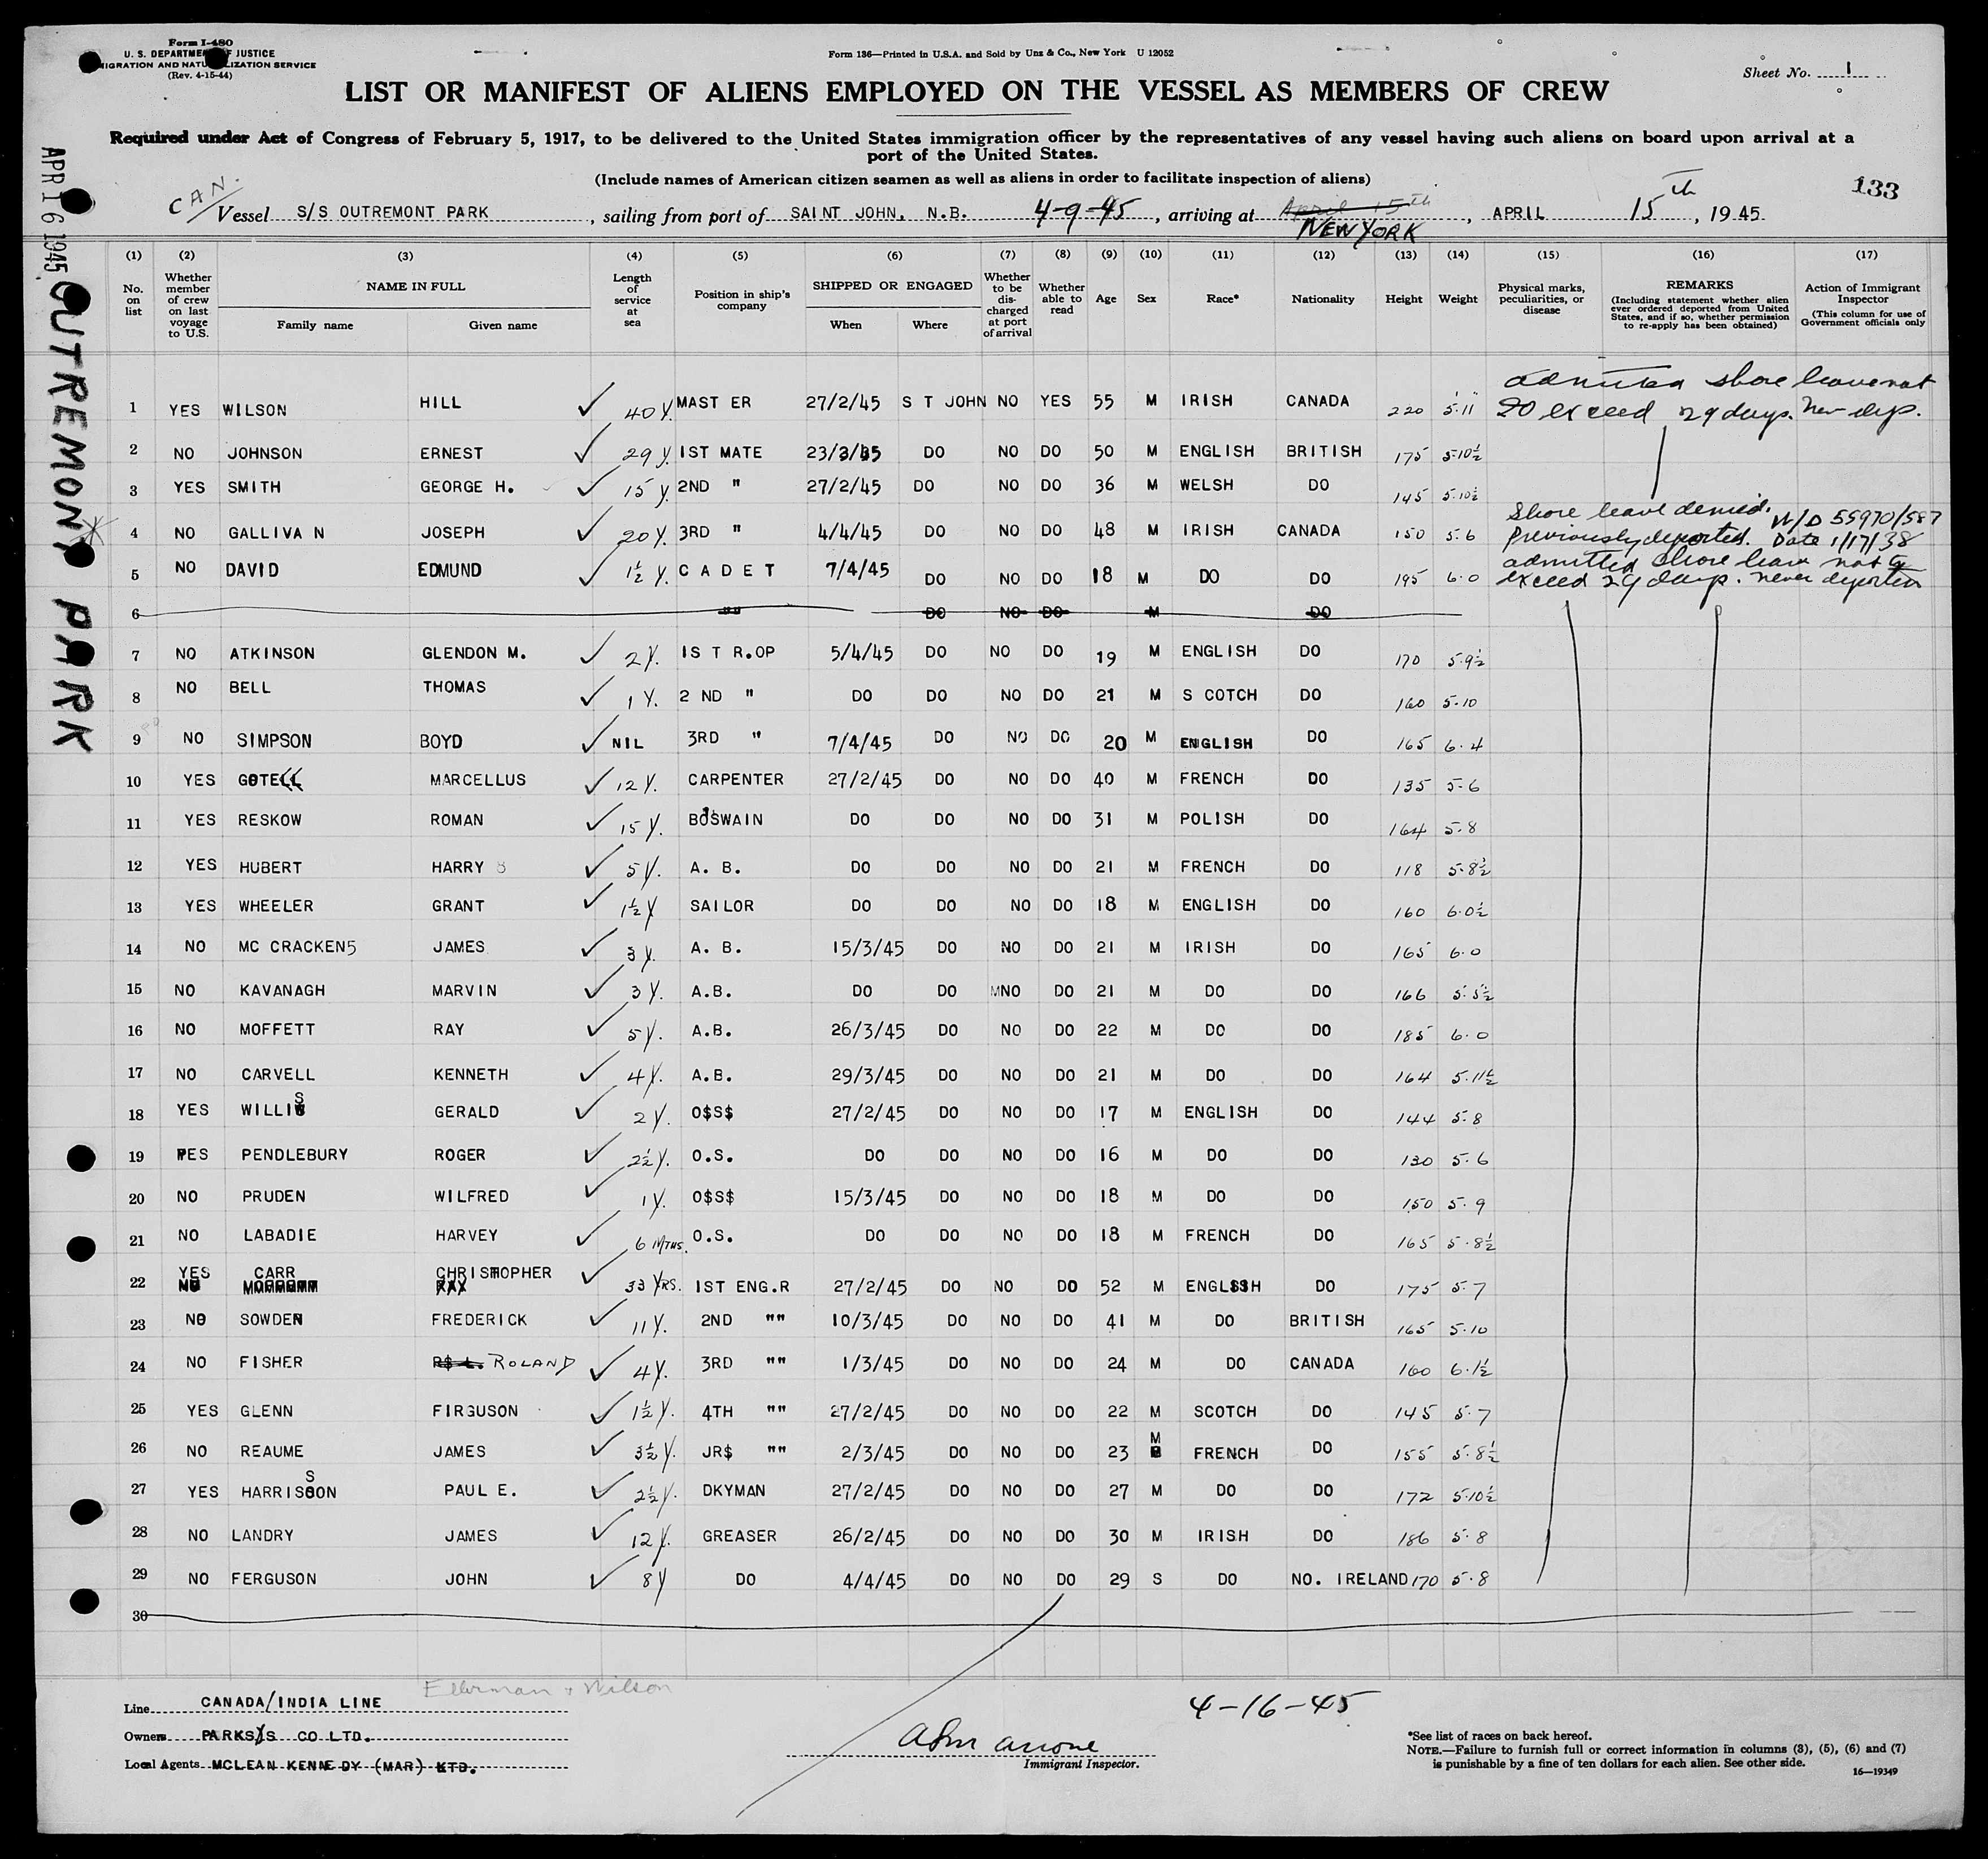 Form I-480
U. S. DEPARTMENT OF JUSTICE
IMMIGRATION AND NATURALIZATION SERVICE
(Rev. 4-15-44)
Form 136—Printed in U.S.A. and Sold by Unz & Co., New York U 12052
Sheet No. 1
LIST OR MANIFEST OF ALIENS EMPLOYED ON THE VESSEL AS MEMBERS OF CREW
Required under Act of Congress of February 5, 1917, to be delivered to the United States immigration officer by the representatives of any vessel having such aliens on board upon arrival at a
port of the United States.
(Include names of American citizen seamen as well as aliens in order to facilitate inspection of aliens)
133
CAN.
Vessel S/S OUTREMONT PARK, sailing from port of SAINT JOHN, N.B. 4-9-45, arriving at April 15th NEW YORK, APRIL 15th, 1945
APR 16 1945
OUTREMONT PARK
(1) (2) (3) (4) (5) (6) (7) (8) (9) (10) (11) (12) (13) (14) (15) (16) (17)
No. on list
Whether member of crew on last voyage to U.S.
NAME IN FULL
Family name Given name
Length of service at sea
Position in ship's company
SHIPPED OR ENGAGED
When Where
Whether to be discharged at port of arrival
Whether able to read
Age Sex Race* Nationality Height Weight
Physical marks, peculiarities, or disease
REMARKS
(Including statement whether alien ever ordered deported from United States, and if so, whether permission to re-apply has been obtained)
Action of Immigrant Inspector
(This column for use of Government officials only
1 YES WILSON HILL 40 Y. MAST ER 27/2/45 S T JOHN NO YES 55 M IRISH CANADA 220 5.11 admitted shore leave not
to exceed 29 days. Nev dep.
2 NO JOHNSON ERNEST 29 Y. 1ST MATE 23/3/45 DO NO DO 50 M ENGLISH BRITISH 175 5-10½
3 YES SMITH GEORGE H. 15 Y. 2ND " 27/2/45 DO NO DO 36 M WELSH DO 145 5-10½
4 NO GALLIVA N JOSEPH 20 Y. 3RD " 4/4/45 DO NO DO 48 M IRISH CANADA 150 5.6 Shore leave denied. W/D 55970/587
Previously deported. Date 1/17/38
5 NO DAVID EDMUND 1½ Y. C A D E T 7/4/45 DO NO DO 18 M DO DO 195 6.0 admitted shore leave not to
exceed 29 days. never deported
6 "" DO NO DO M DO
7 NO ATKINSON GLENDON M. 2 Y. IS T R.OP 5/4/45 DO NO DO 19 M ENGLISH DO 170 5.9½
8 NO BELL THOMAS 1 Y. 2 ND " DO DO NO DO 21 M S COTCH DO 160 5-10
9 NO SIMPSON BOYD NIL 3RD " 7/4/45 DO NO DO 20 M ENGLISH DO 165 6.4
10 YES GOTELL MARCELLUS 12 Y. CARPENTER 27/2/45 DO NO DO 40 M FRENCH DO 135 5-6
11 YES RESKOW ROMAN 15 Y. BO'SWAIN DO DO NO DO 31 M POLISH DO 164 5.8
12 YES HUBERT HARRY 5 Y. A. B. DO DO NO DO 21 M FRENCH DO 118 5-8½
13 YES WHEELER GRANT 1½ Y SAILOR DO DO NO DO 18 M ENGLISH DO 160 6.0½
14 NO MC CRACKEN5 JAMES 3 Y. A. B. 15/3/45 DO NO DO 21 M IRISH DO 165 6.0
15 NO KAVANAGH MARVIN 3 Y. A.B. DO DO NO DO 21 M DO DO 166 5.5½
16 NO MOFFETT RAY 5 Y. A.B. 26/3/45 DO NO DO 22 M DO DO 185 6.0
17 NO CARVELL KENNETH 4 Y. A.B. 29/3/45 DO NO DO 21 M DO DO 164 5.11½
18 YES WILLIS GERALD 2 Y. O$S$ 27/2/45 DO NO DO 17 M ENGLISH DO 144 5.8
19 YES PENDLEBURY ROGER 2½ Y. O.S. DO DO NO DO 16 M DO DO 130 5.6
20 NO PRUDEN WILFRED 1 Y. O$S$ 15/3/45 DO NO DO 18 M DO DO 150 5.9
21 NO LABADIE HARVEY 6 MTHS. O.S. DO DO NO DO 18 M FRENCH DO 165 5.8½
22 YES CARR CHRISTOPHER 33 YRS. 1ST ENG.R 27/2/45 DO NO DO 52 M ENGLISH DO 175 5.7
23 NO SOWDEN FREDERICK 11 Y. 2ND "" 10/3/45 DO NO DO 41 M DO BRITISH 165 5.10
24 NO FISHER R$ L. ROLAND 4 Y. 3RD "" 1/3/45 DO NO DO 24 M DO CANADA 160 6.1½
25 YES GLENN FIRGUSON 1½ Y. 4TH "" 27/2/45 DO NO DO 22 M SCOTCH DO 145 5.7
26 NO REAUME JAMES 3½ Y. JR$ "" 2/3/45 DO NO DO 23 M FRENCH DO 155 5.8½
27 YES HARRISON PAUL E. 2½ Y. DKYMAN 27/2/45 DO NO DO 27 M DO DO 172 5.10½
28 NO LANDRY JAMES 12 Y. GREASER 26/2/45 DO NO DO 30 M IRISH DO 186 5.8
29 NO FERGUSON JOHN 8 Y DO 4/4/45 DO NO DO 29 S DO NO. IRELAND 170 5.8
30
Line CANADA/INDIA LINE Ellerman + Wilson
Owners PARKS/S CO LTD.
Local Agents MCLEAN KENNE DY (MAR) KTD.
4-16-45
Immigrant Inspector.
*See list of races on back hereof.
NOTE.—Failure to furnish full or correct information in columns (3), (5), (6) and (7)
is punishable by a fine of ten dollars for each alien. See other side.
16—19349